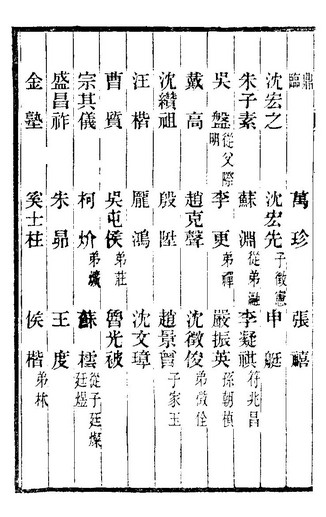 鼎臨 萬珍 張禧
沈宏之 沈宏先子徵憲 申艇
朱子素 蘇淵從弟 李凝祺符兆昌
吳盤從父際明 李更弟 嚴振英孫朝楨
戴高 趙克聲 沈徵俊弟徵佺
沈纘祖 殷陞 趙景曾子家玉
汪楷 龐鴻 沈文璋
曹質 吳屯侯弟莊 曾光被
宗其儀 柯炌弟爌 蘇橒從子廷燦廷煜
盛昌祚 朱昴 王度
金塾 奚士柱 侯楷弟林